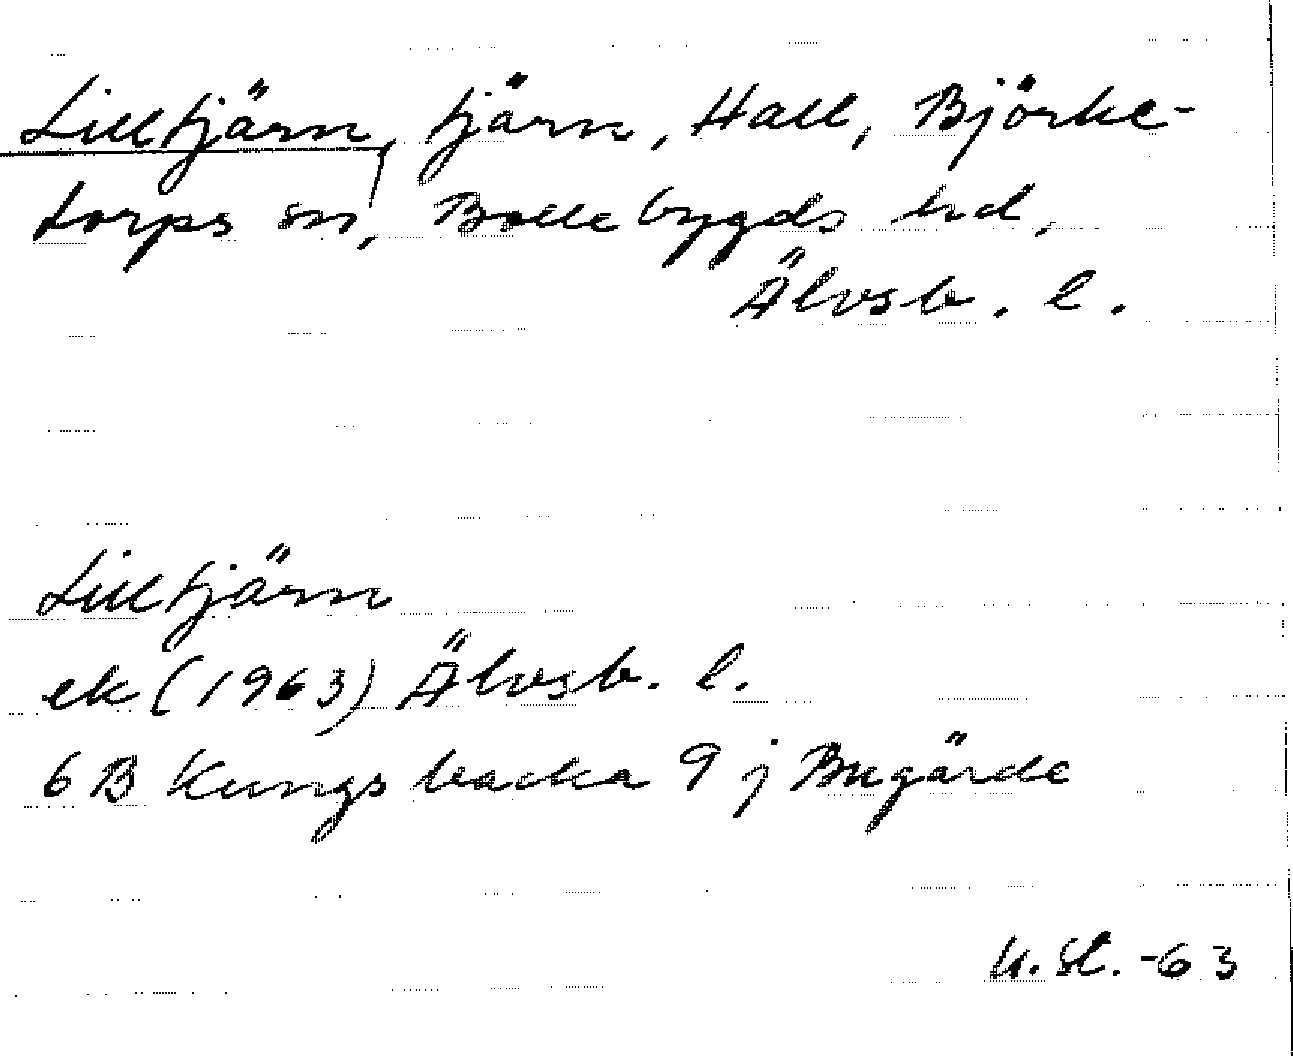 Lilltjärn, tjärn, Hall, Björke-
torps sn, Bollebygds hd,
Älvsb. l.
Lilltjärn
ek (1963) Älvsb. l.
6 B Kungsbacka 9 j Bugärde
-63